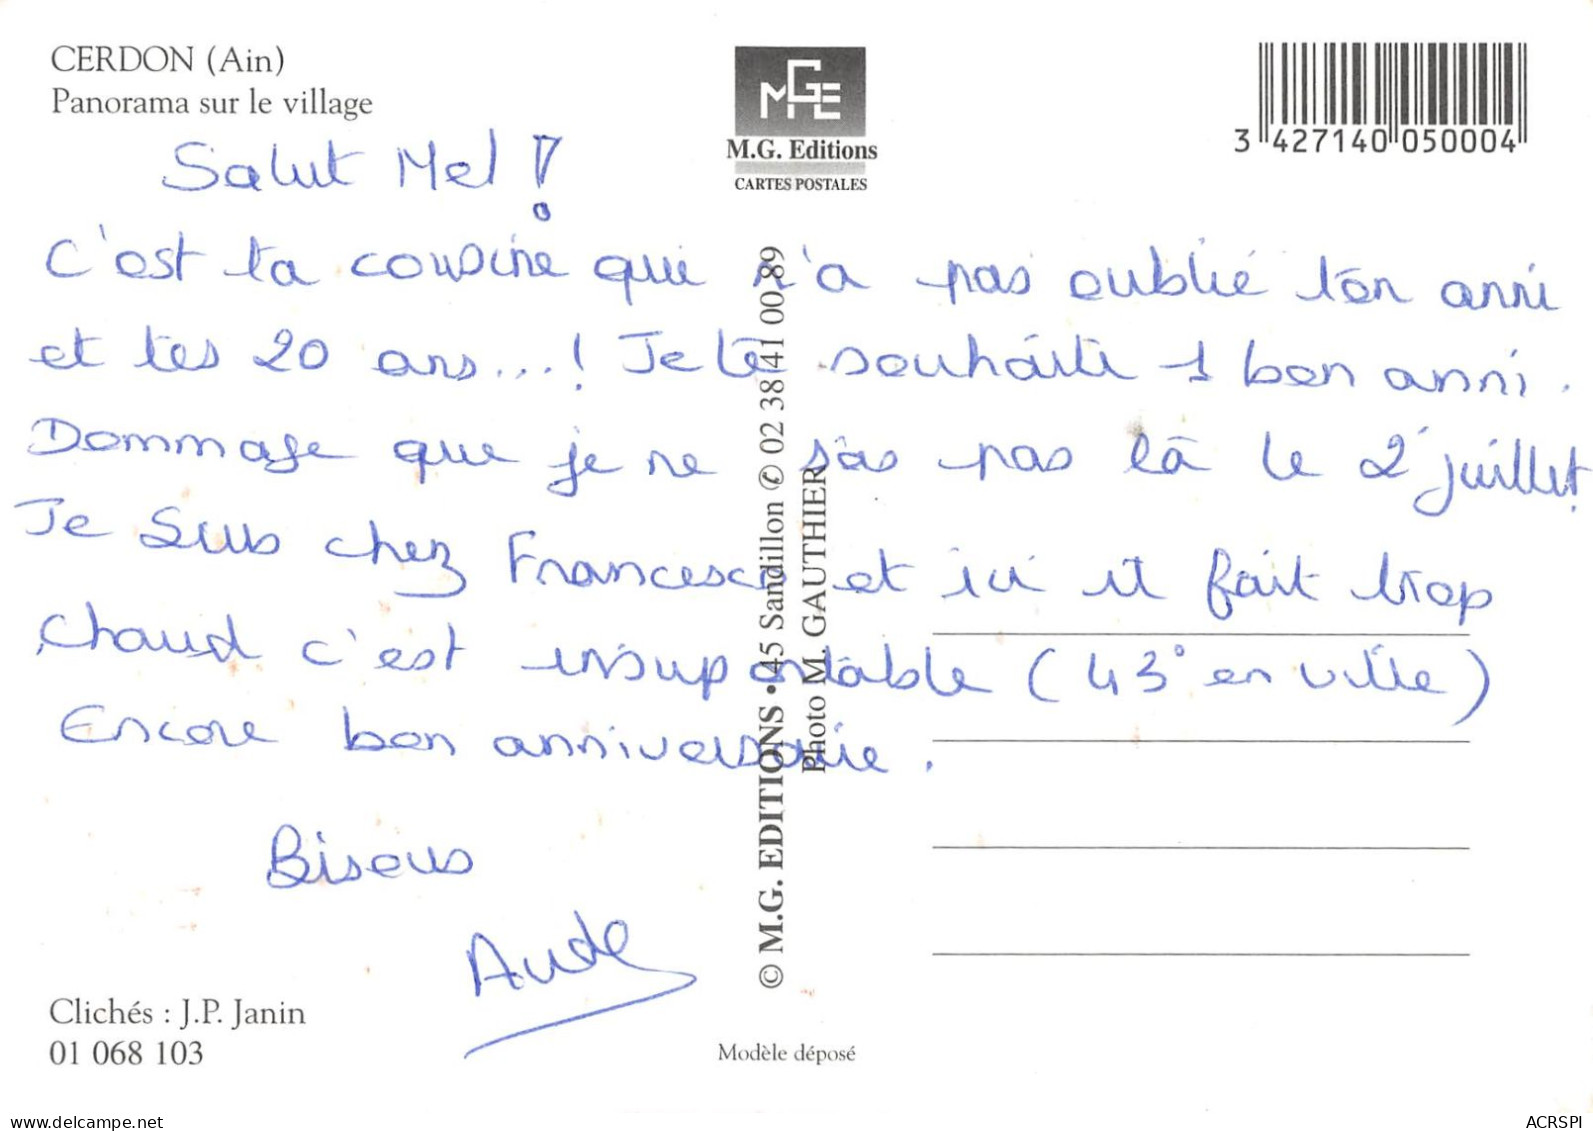 CERDON (Ain)
Panorama sur le village
M.G. Editions
CARTES POSTALES
3 427140 050004
Salut Mel !
C'est ta cousine qui n'a pas oublié ton anni
et tes 20 ans...! Je te souhaite 1 bon anni.
Dommage que je ne sas pas là le 2 juillet.
Je suis chez Francesco et ici il fait trop
chaud c'est insuportable (43° en ville)
Encore bon anniversaire.
Bisous
Aude
© M.G. EDITIONS • 45 Sandillon ✆ 02 38 41 00 89
Photo M. GAUTHIER
Clichés : J.P. Janin
01 068 103
Modèle déposé
https://www.delcampe.net
ACRSPI